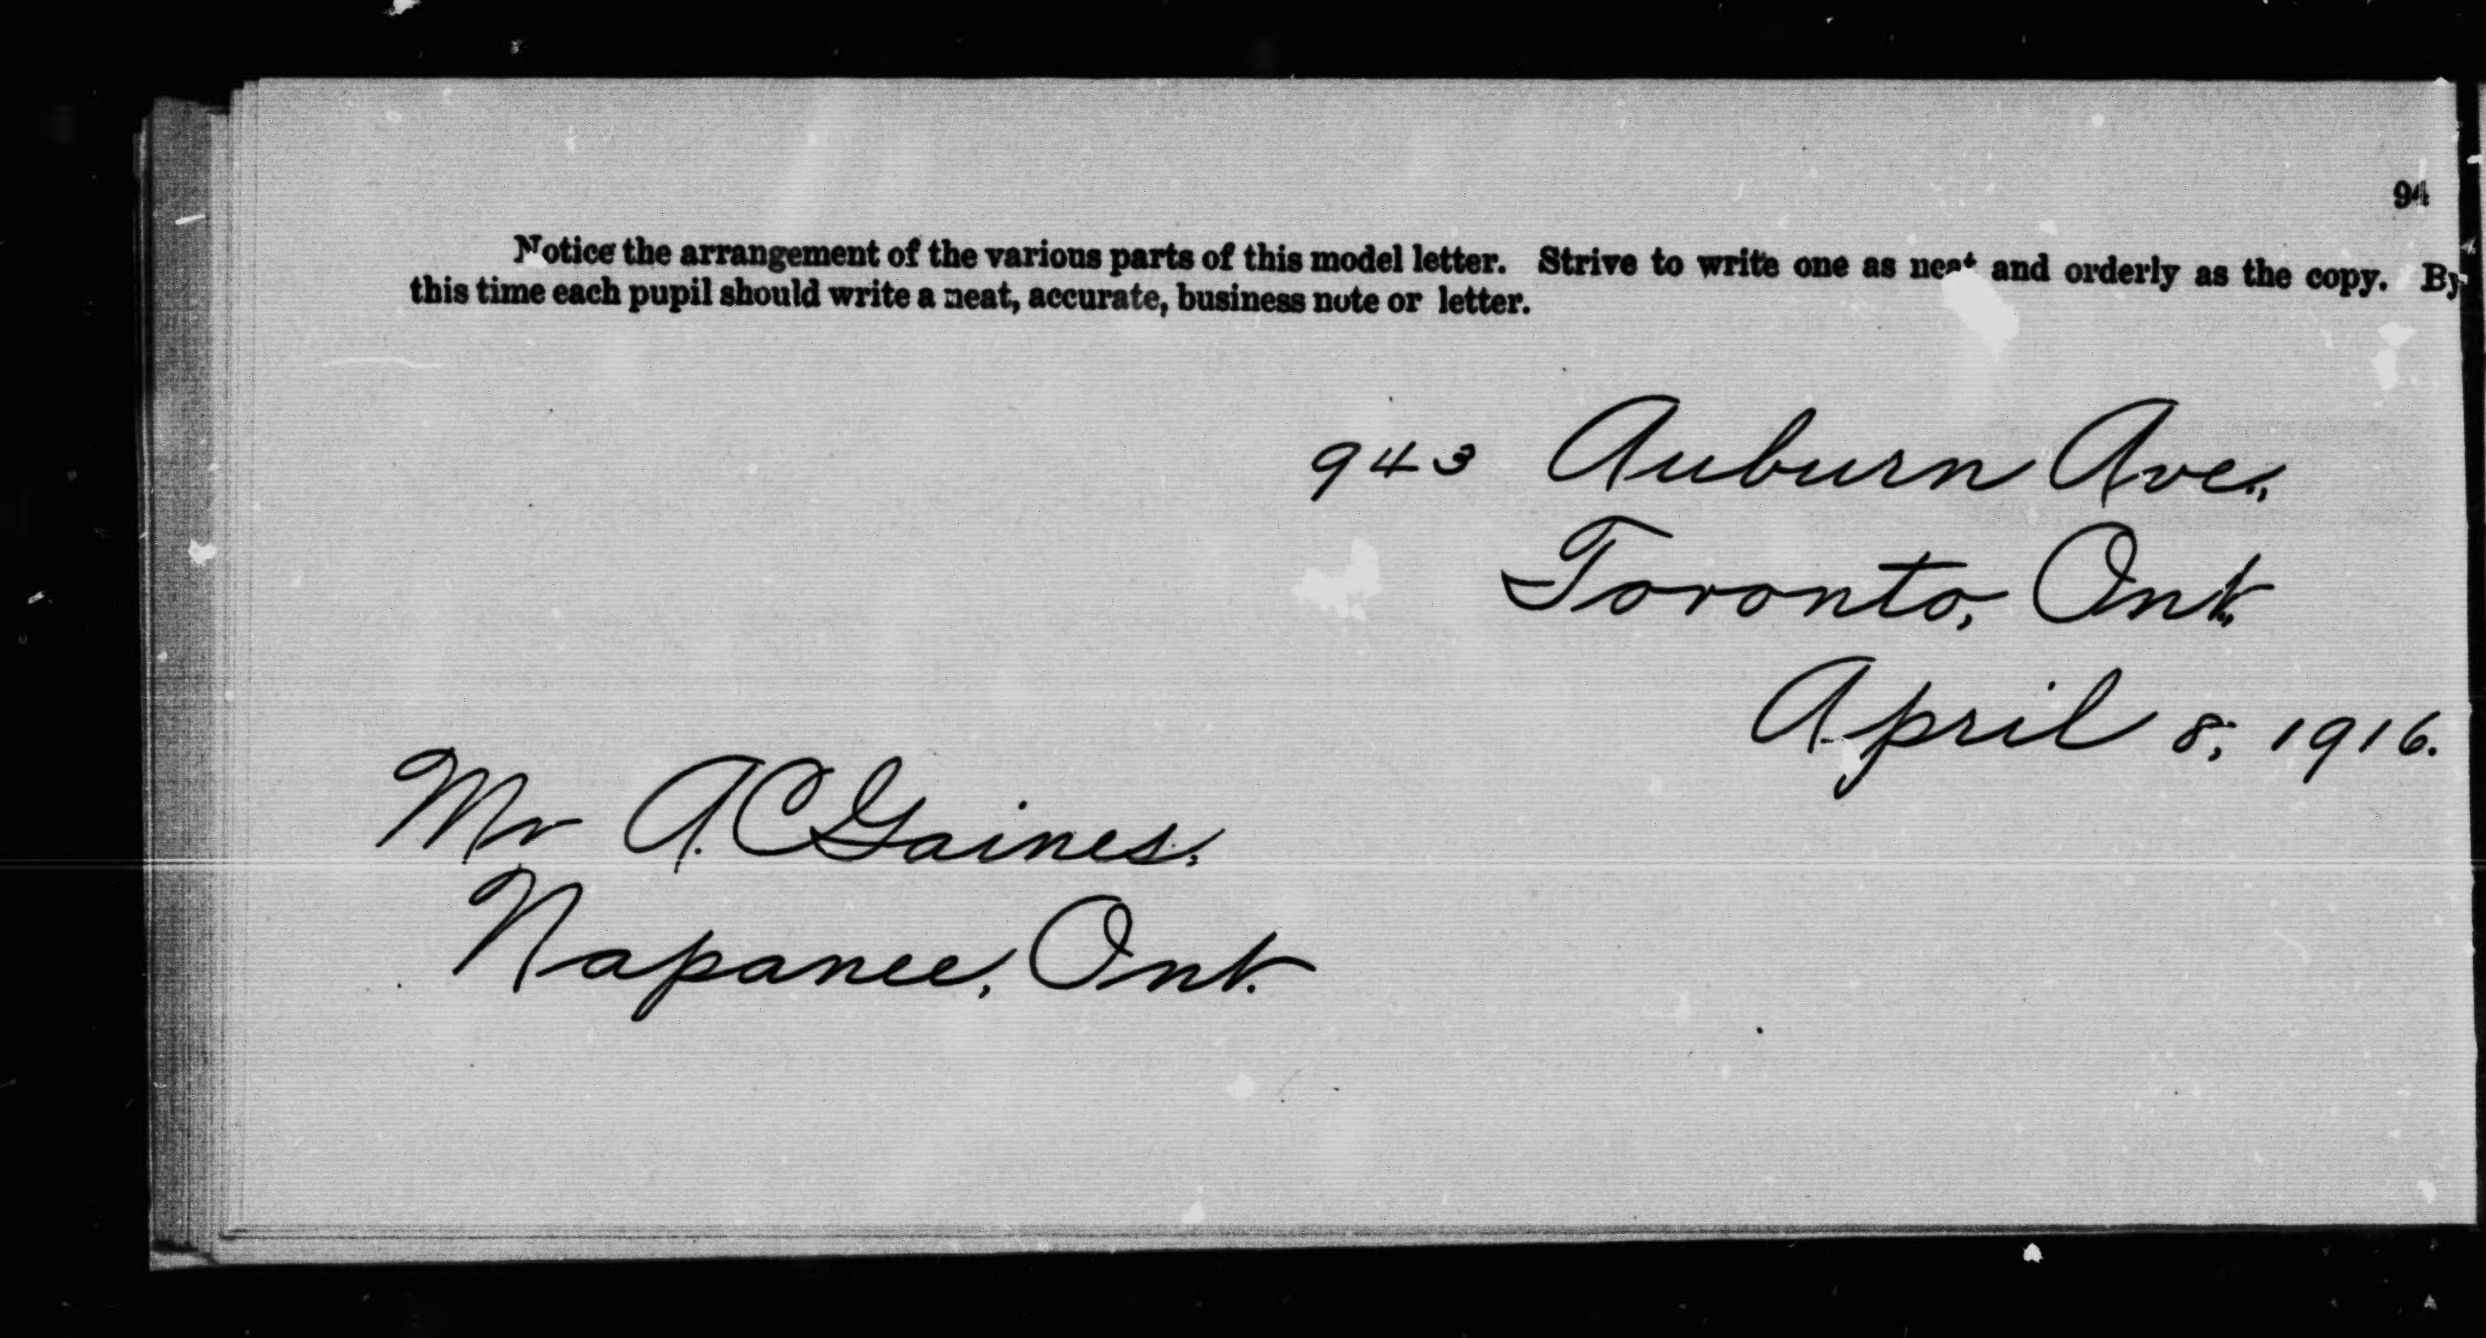 94
Notice the arrangement of the various parts of this model letter. Strive to write one as neat and orderly as the copy. By
this time each pupil should write a neat, accurate, business note or letter.
943 Auburn Ave.,
Toronto, Ont.,
April 8, 1916.
Mr A. C. Gaines,
Napanee, Ont.